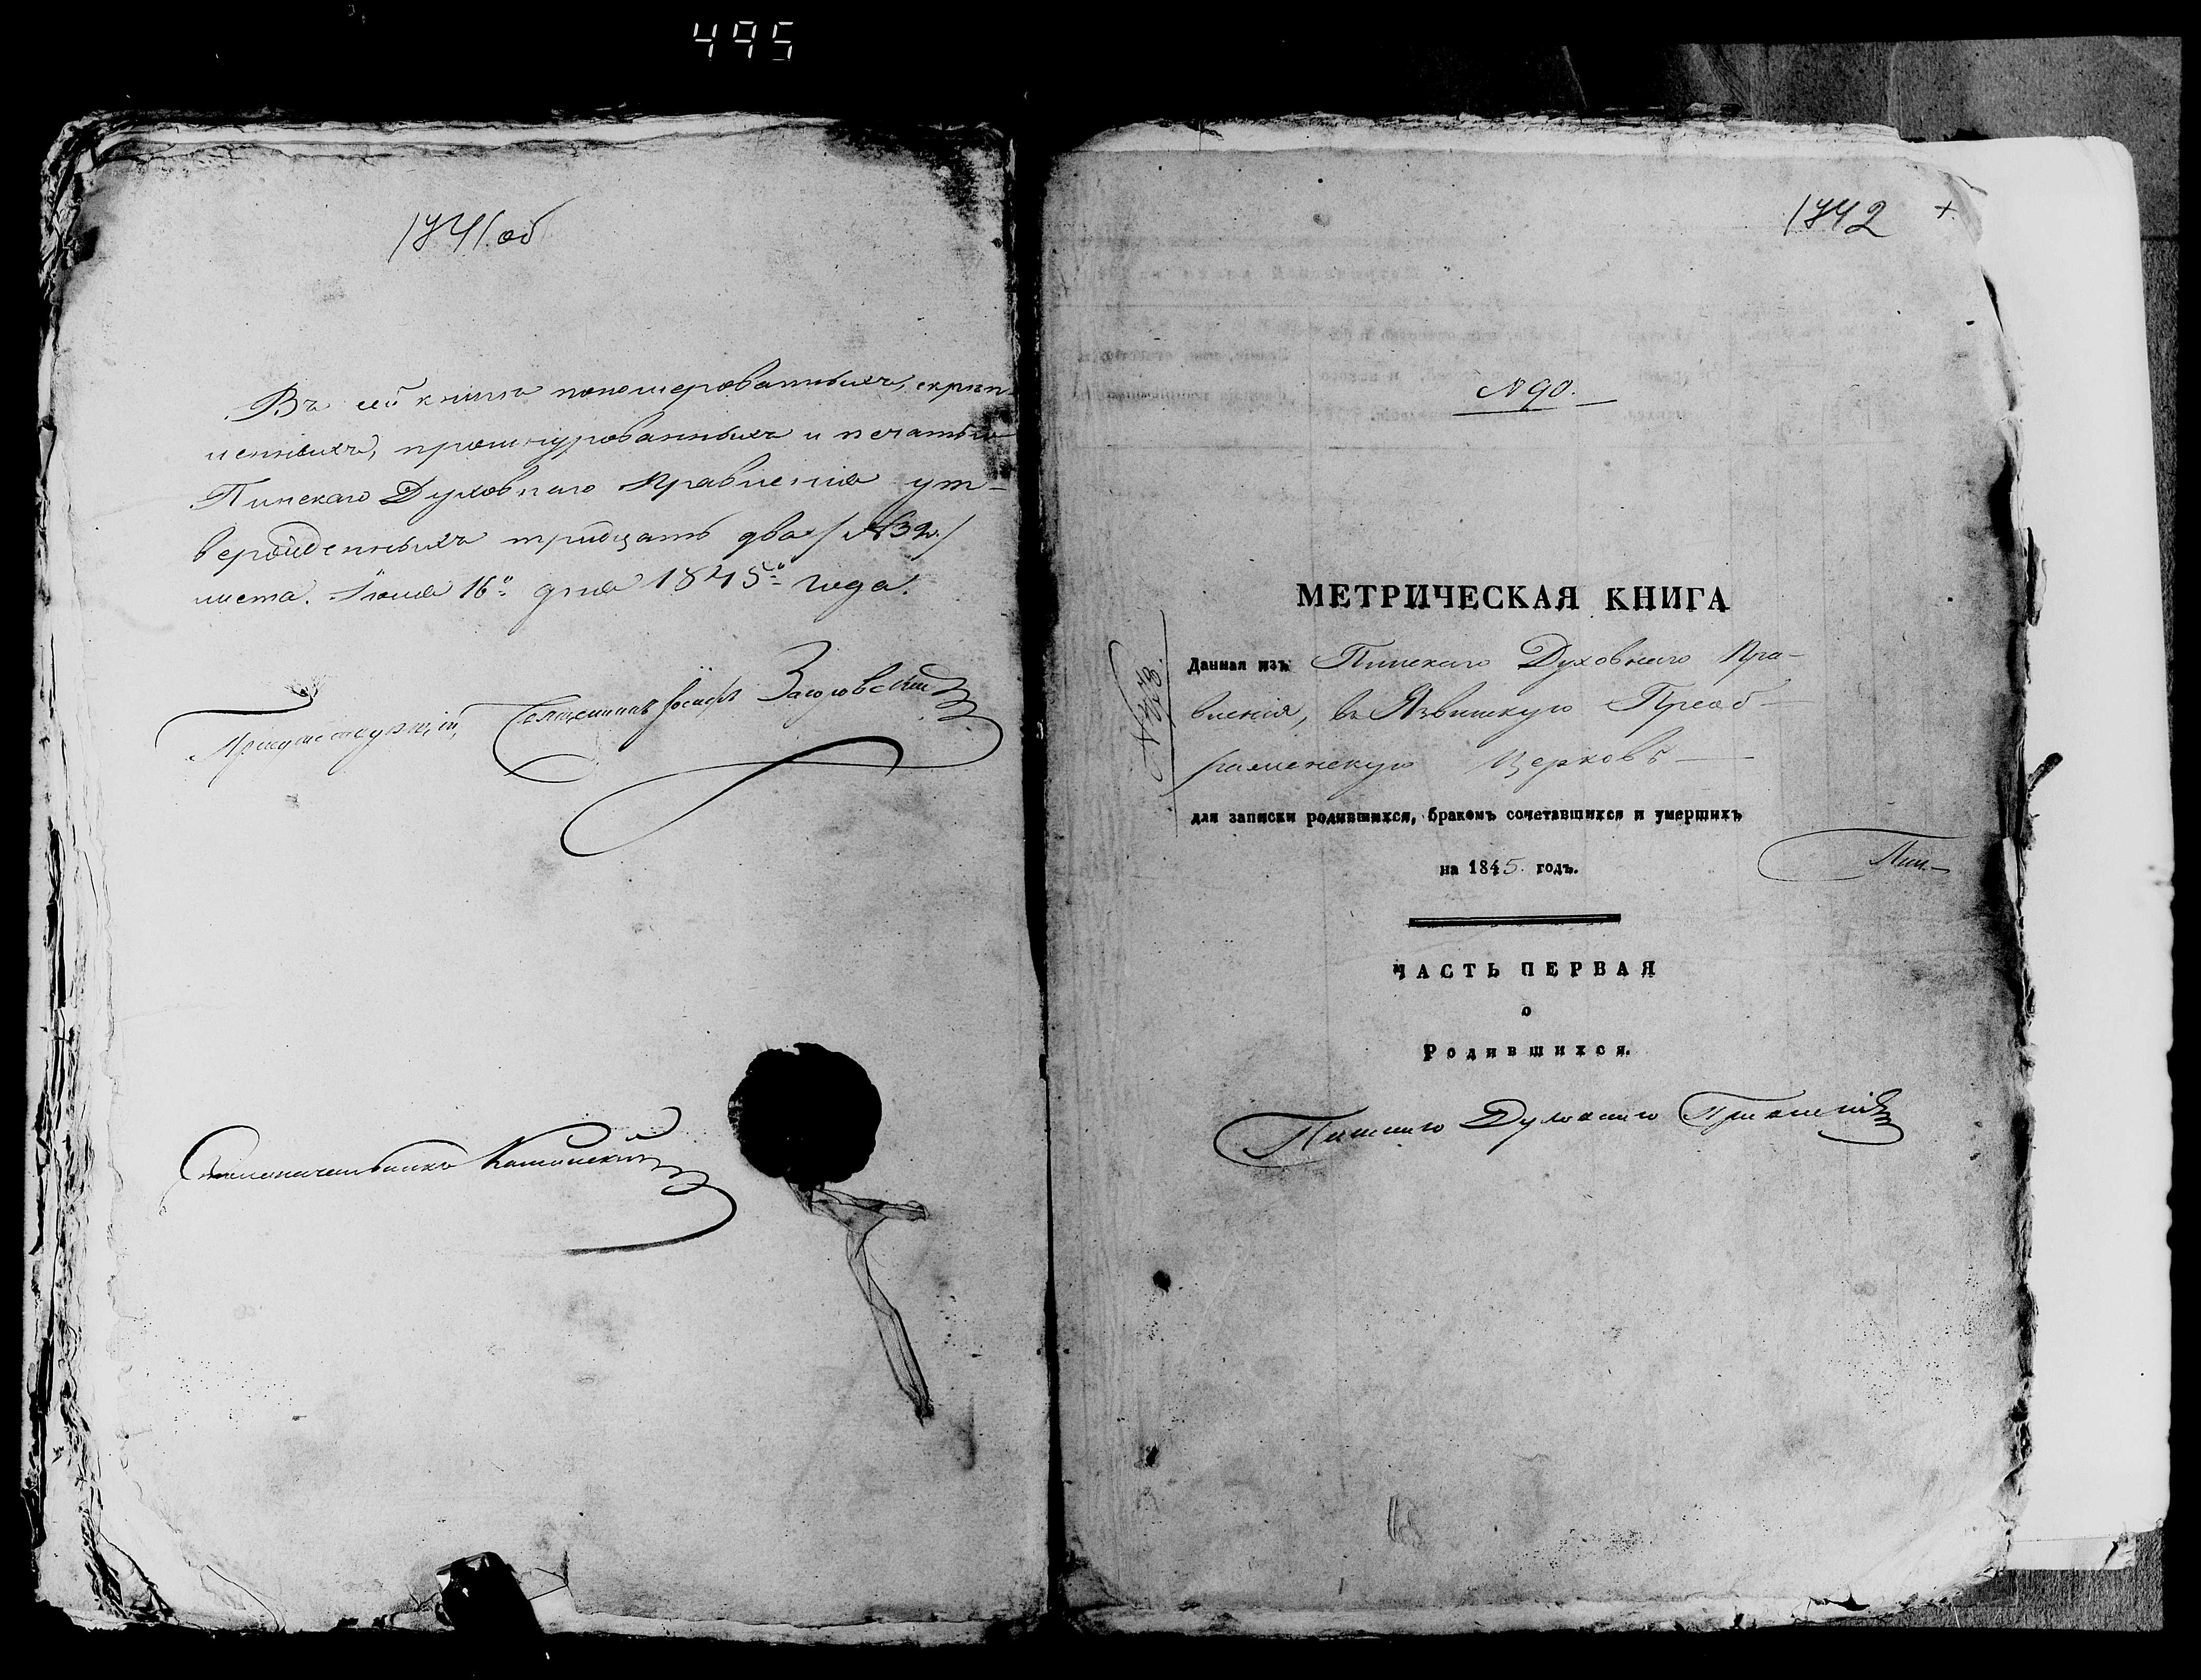 495
1741 об
Въ сей книгѣ пономерованныхъ, скрѣп-
ленныхъ, прошнурованныхъ и печатью
Пинскаго Духовнаго Правленія ут-
вержденныхъ тридцать два / №32./
листа. Іюня 16го дня 1845го года.
Присутствующій, Священникъ Іосифъ
Столоначальникъ Каминскій
1742 +
№ 90.
МЕТРИЧЕСКАЯ КНИГА
Данная изъ Пинскаго Духовнаго Пра-
вленія, въ Язвинскую Преоб-
раженскую Церковь
для записки родившихся, бракомъ сочетавшихся и умершихъ
на 1845 годъ.
Пин-
ЧАСТЬ ПЕРВАЯ
о
Родившихся.
Пинскаго Духовнаго Правленія